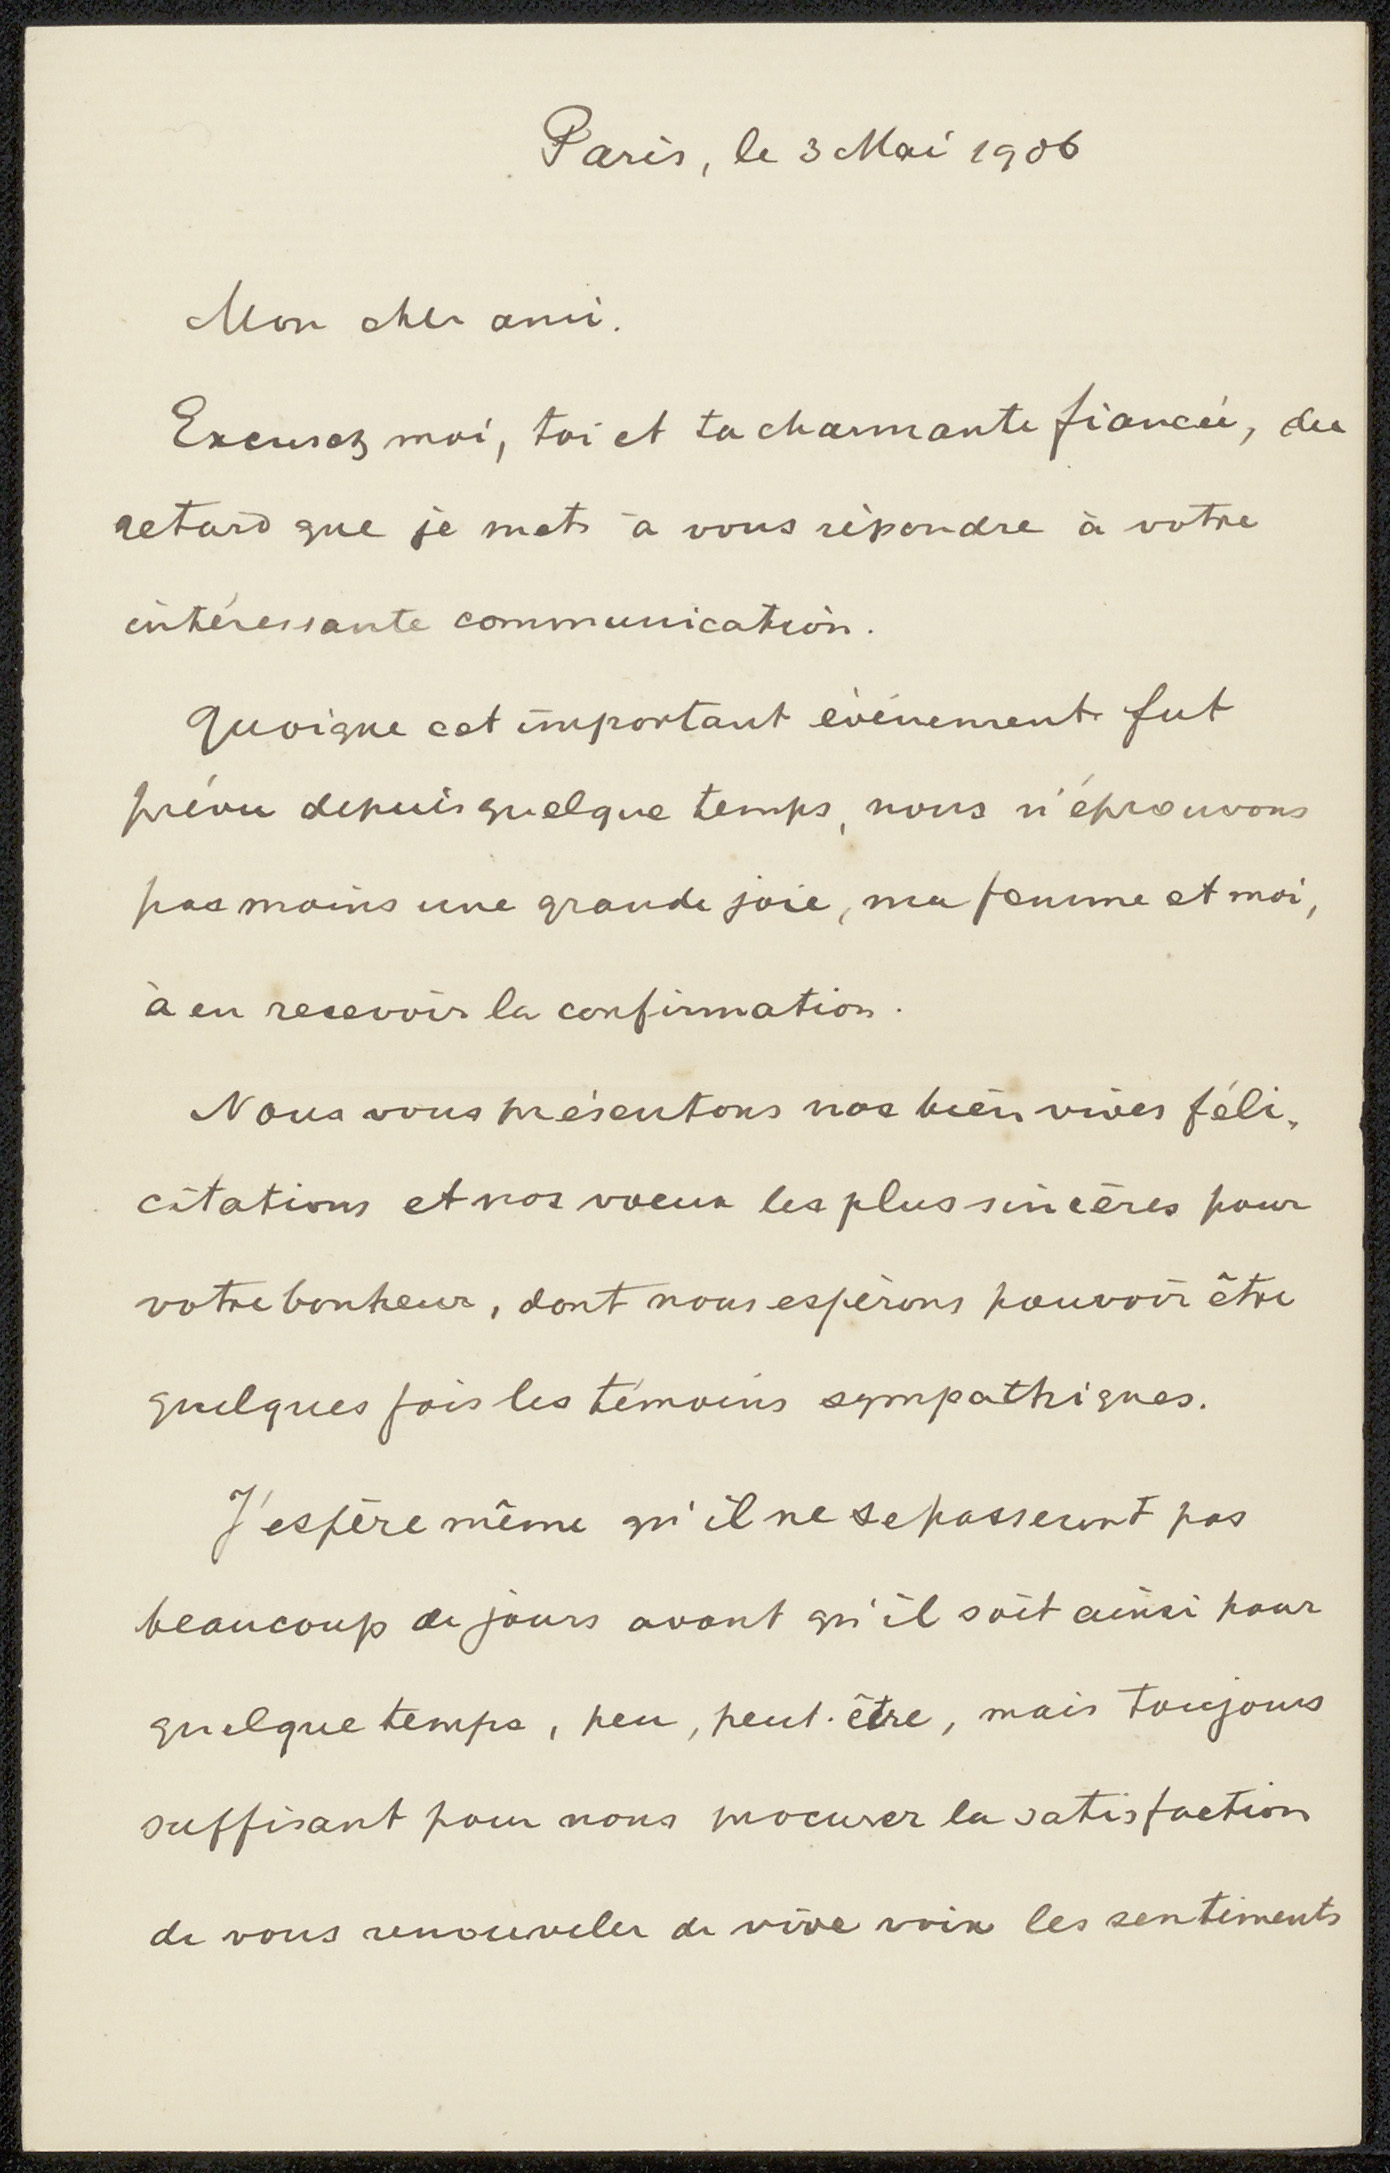 Paris, le 3 Mai 1906
Mon cher ami.
Excusez moi, toi et ta charmante fiancée, du
retard que je mets à vous répondre à votre
intéressante communication.
Quoique cet important évènement fut
prévu depuis quelque temps, nous n'éprouvons
pas moins une grande joie, ma femme et moi,
à en recevoir la confirmation.
Nous vous présentons nos bien vives féli-
citations et nos voeux les plus sincères pour
votre bonheur, dont nous espérons pouvoir être
quelques fois les témoins sympathiques.
J'espère même qu'il ne se passeront pas
beaucoup de jours avant qu'il soit ainsi pour
quelque temps, peu, peut-être, mais toujours
suffisant pour nous procurer la satisfaction
de vous renouveler de vive voix les sentiments